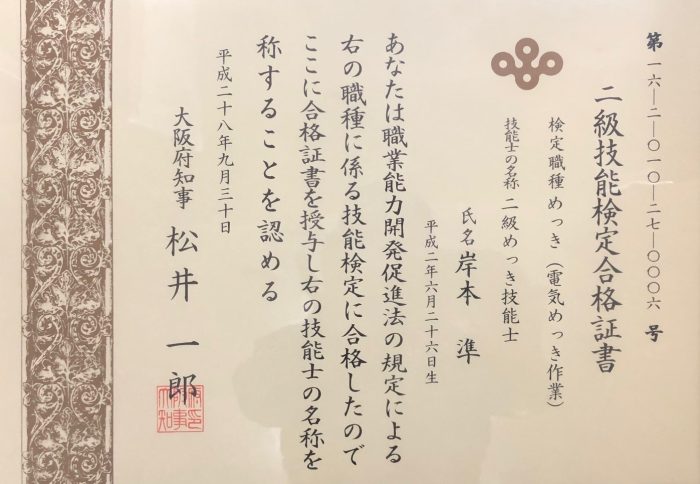 第一六―二―〇一〇―二七―〇〇〇六号
二級技能検定合格証書
検定職種 めっき(電気めっき作業)
技能士の名称 二級めっき技能士
氏名 岸本 準
平成二年六月二十六日生
あなたは職業能力開発促進法の規定による
右の職種に係る技能検定に合格したので
ここに合格証書を授与し右の技能士の名称を
称することを認める
平成二十八年九月三十日
大阪府知事 松井 一郎